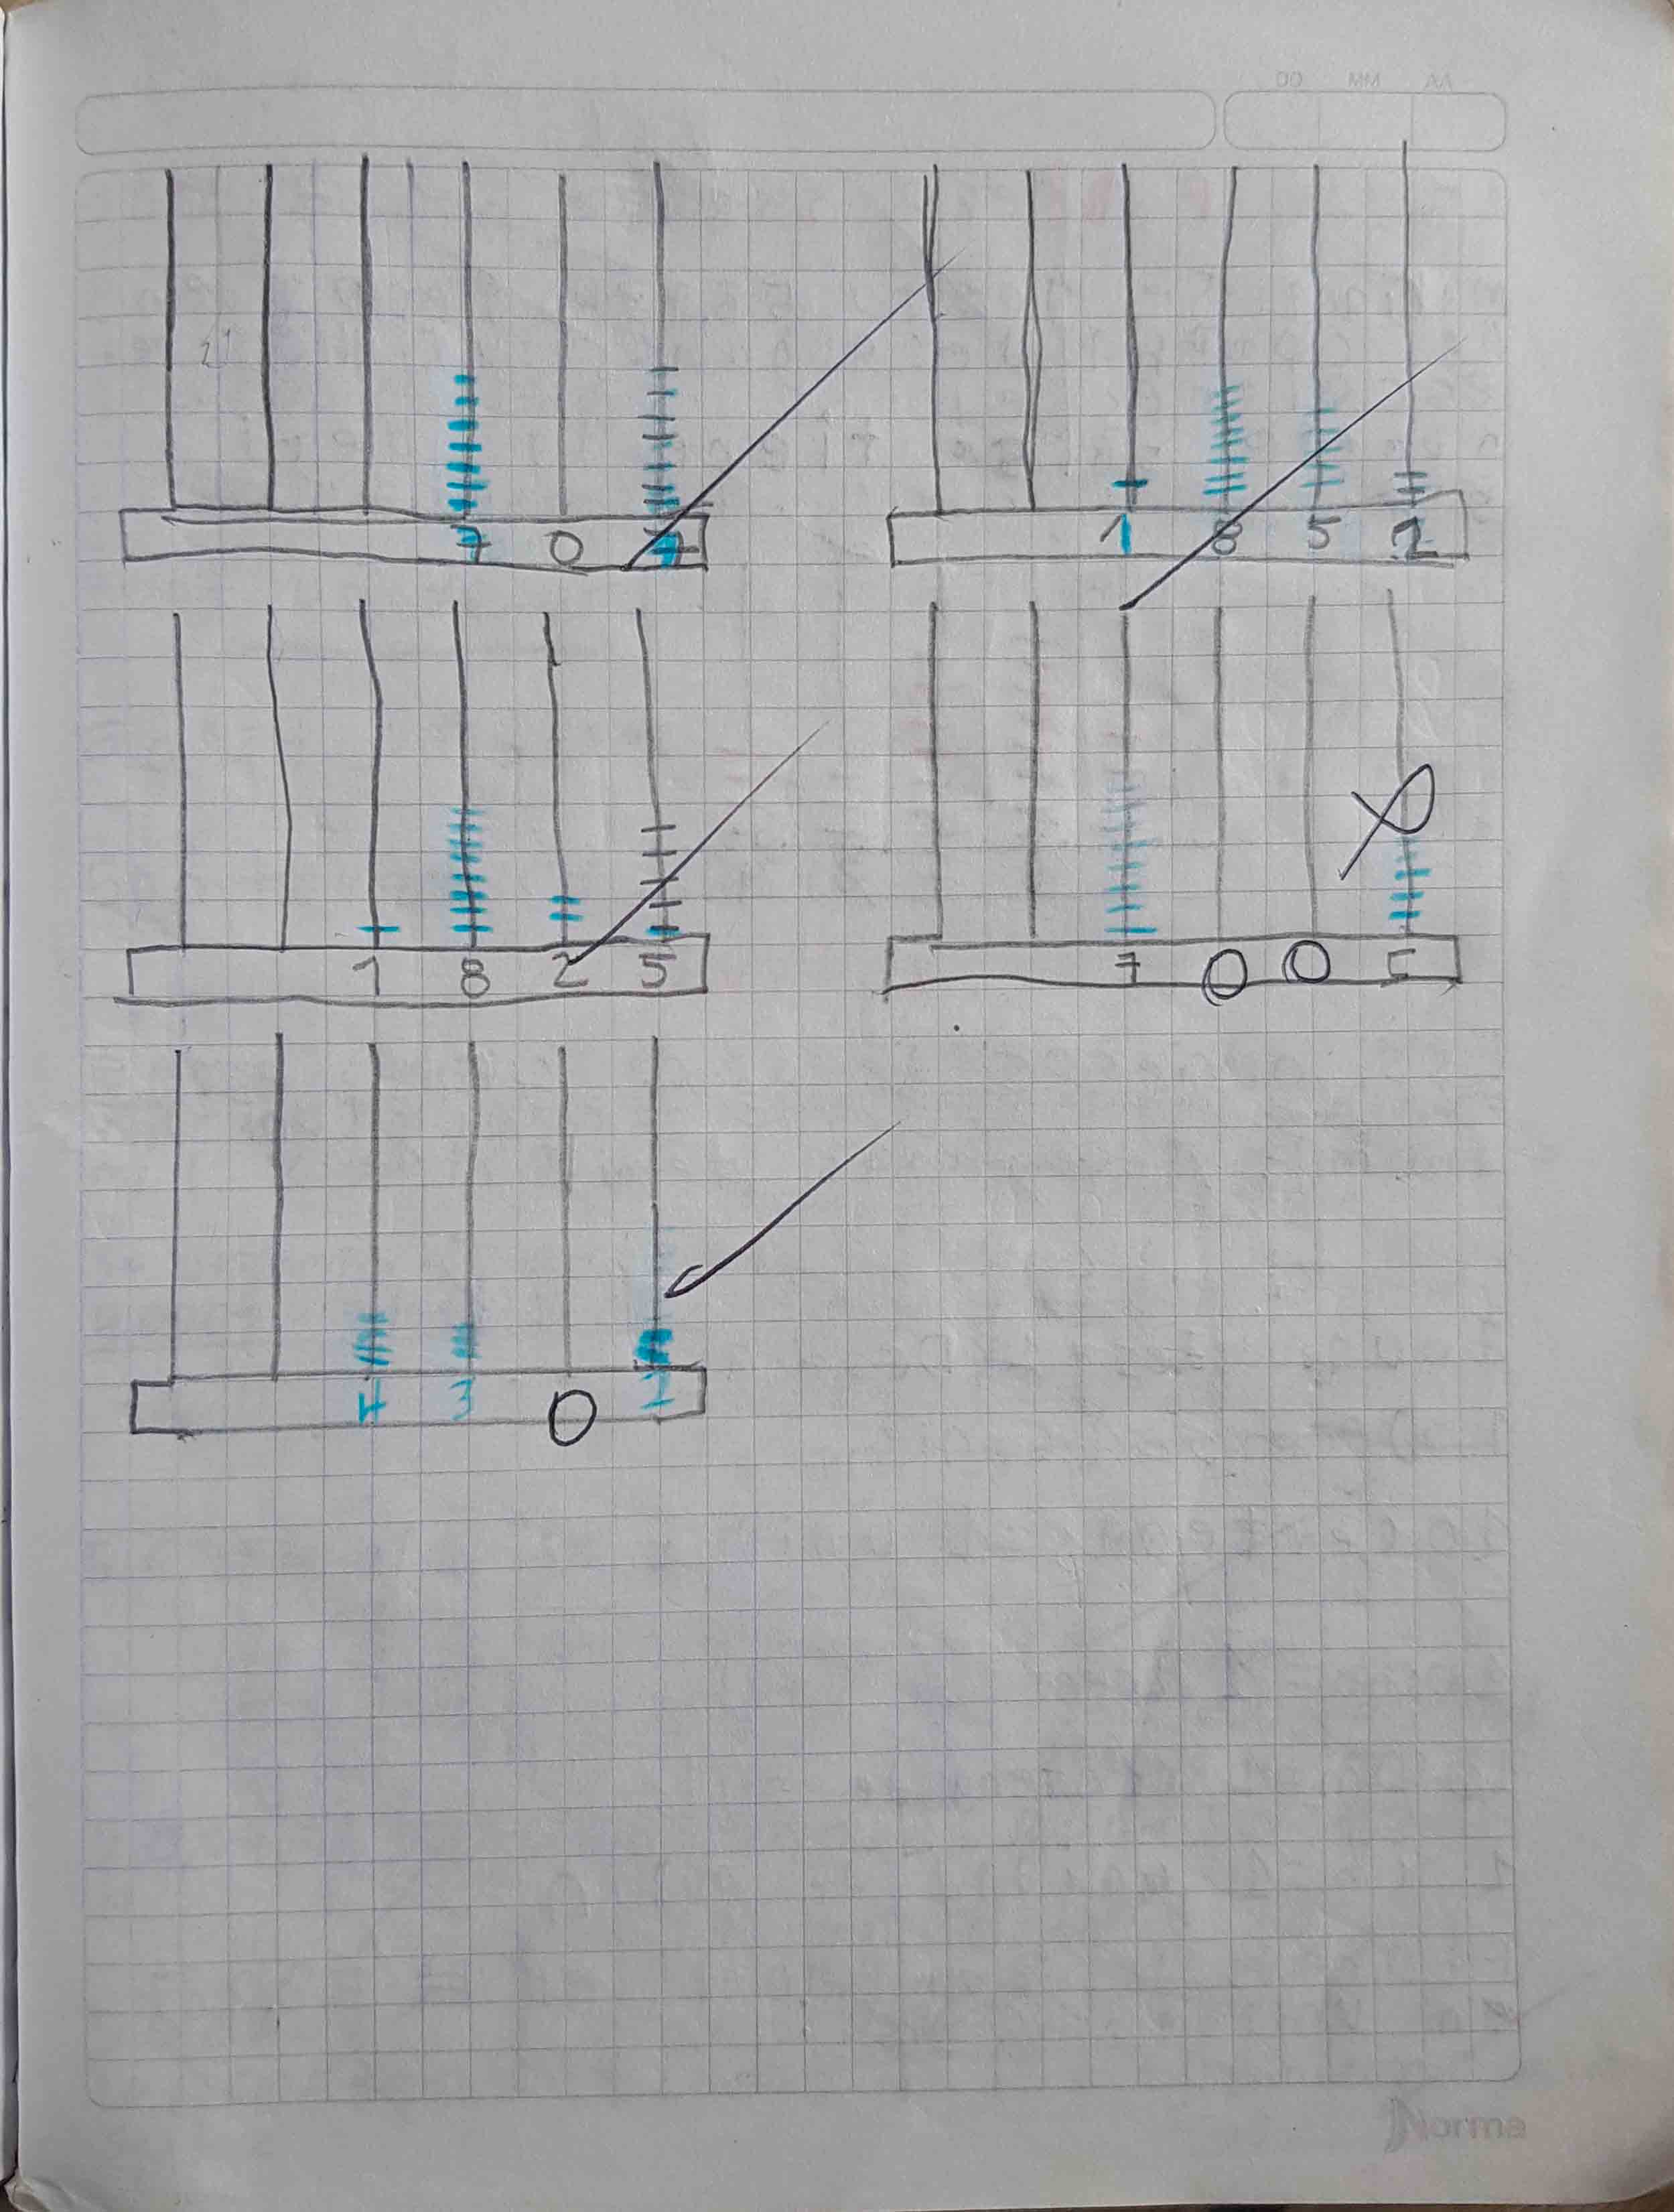 DD MM AA
7 0 7
1 8 5 2
1 8 2 5
7 0 0 5
4 3 0 2
Norma